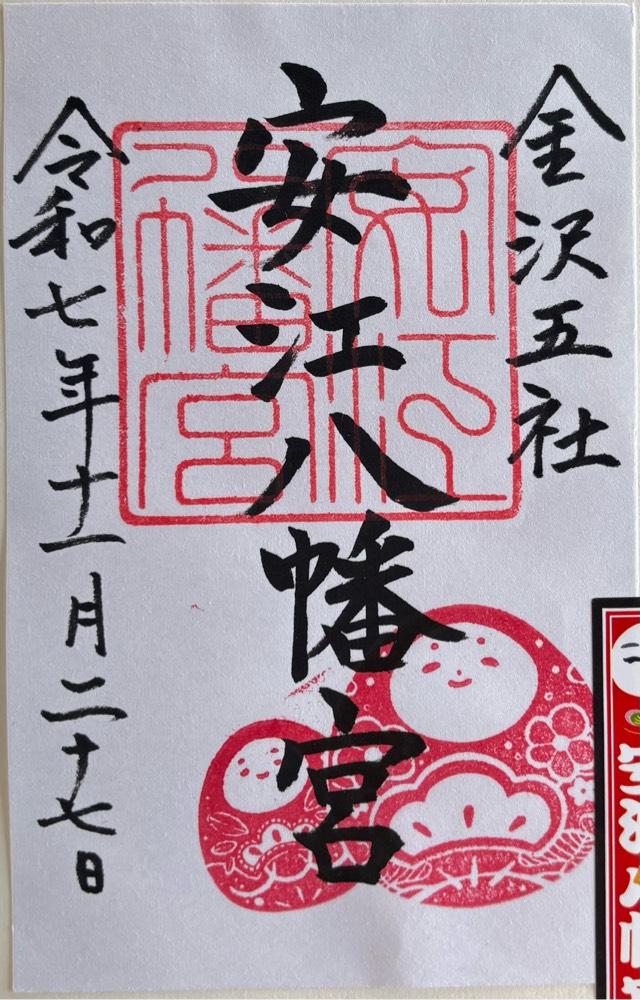 金沢五社
安江八幡宮
令和七年十一月二十七日
安江八幡宮